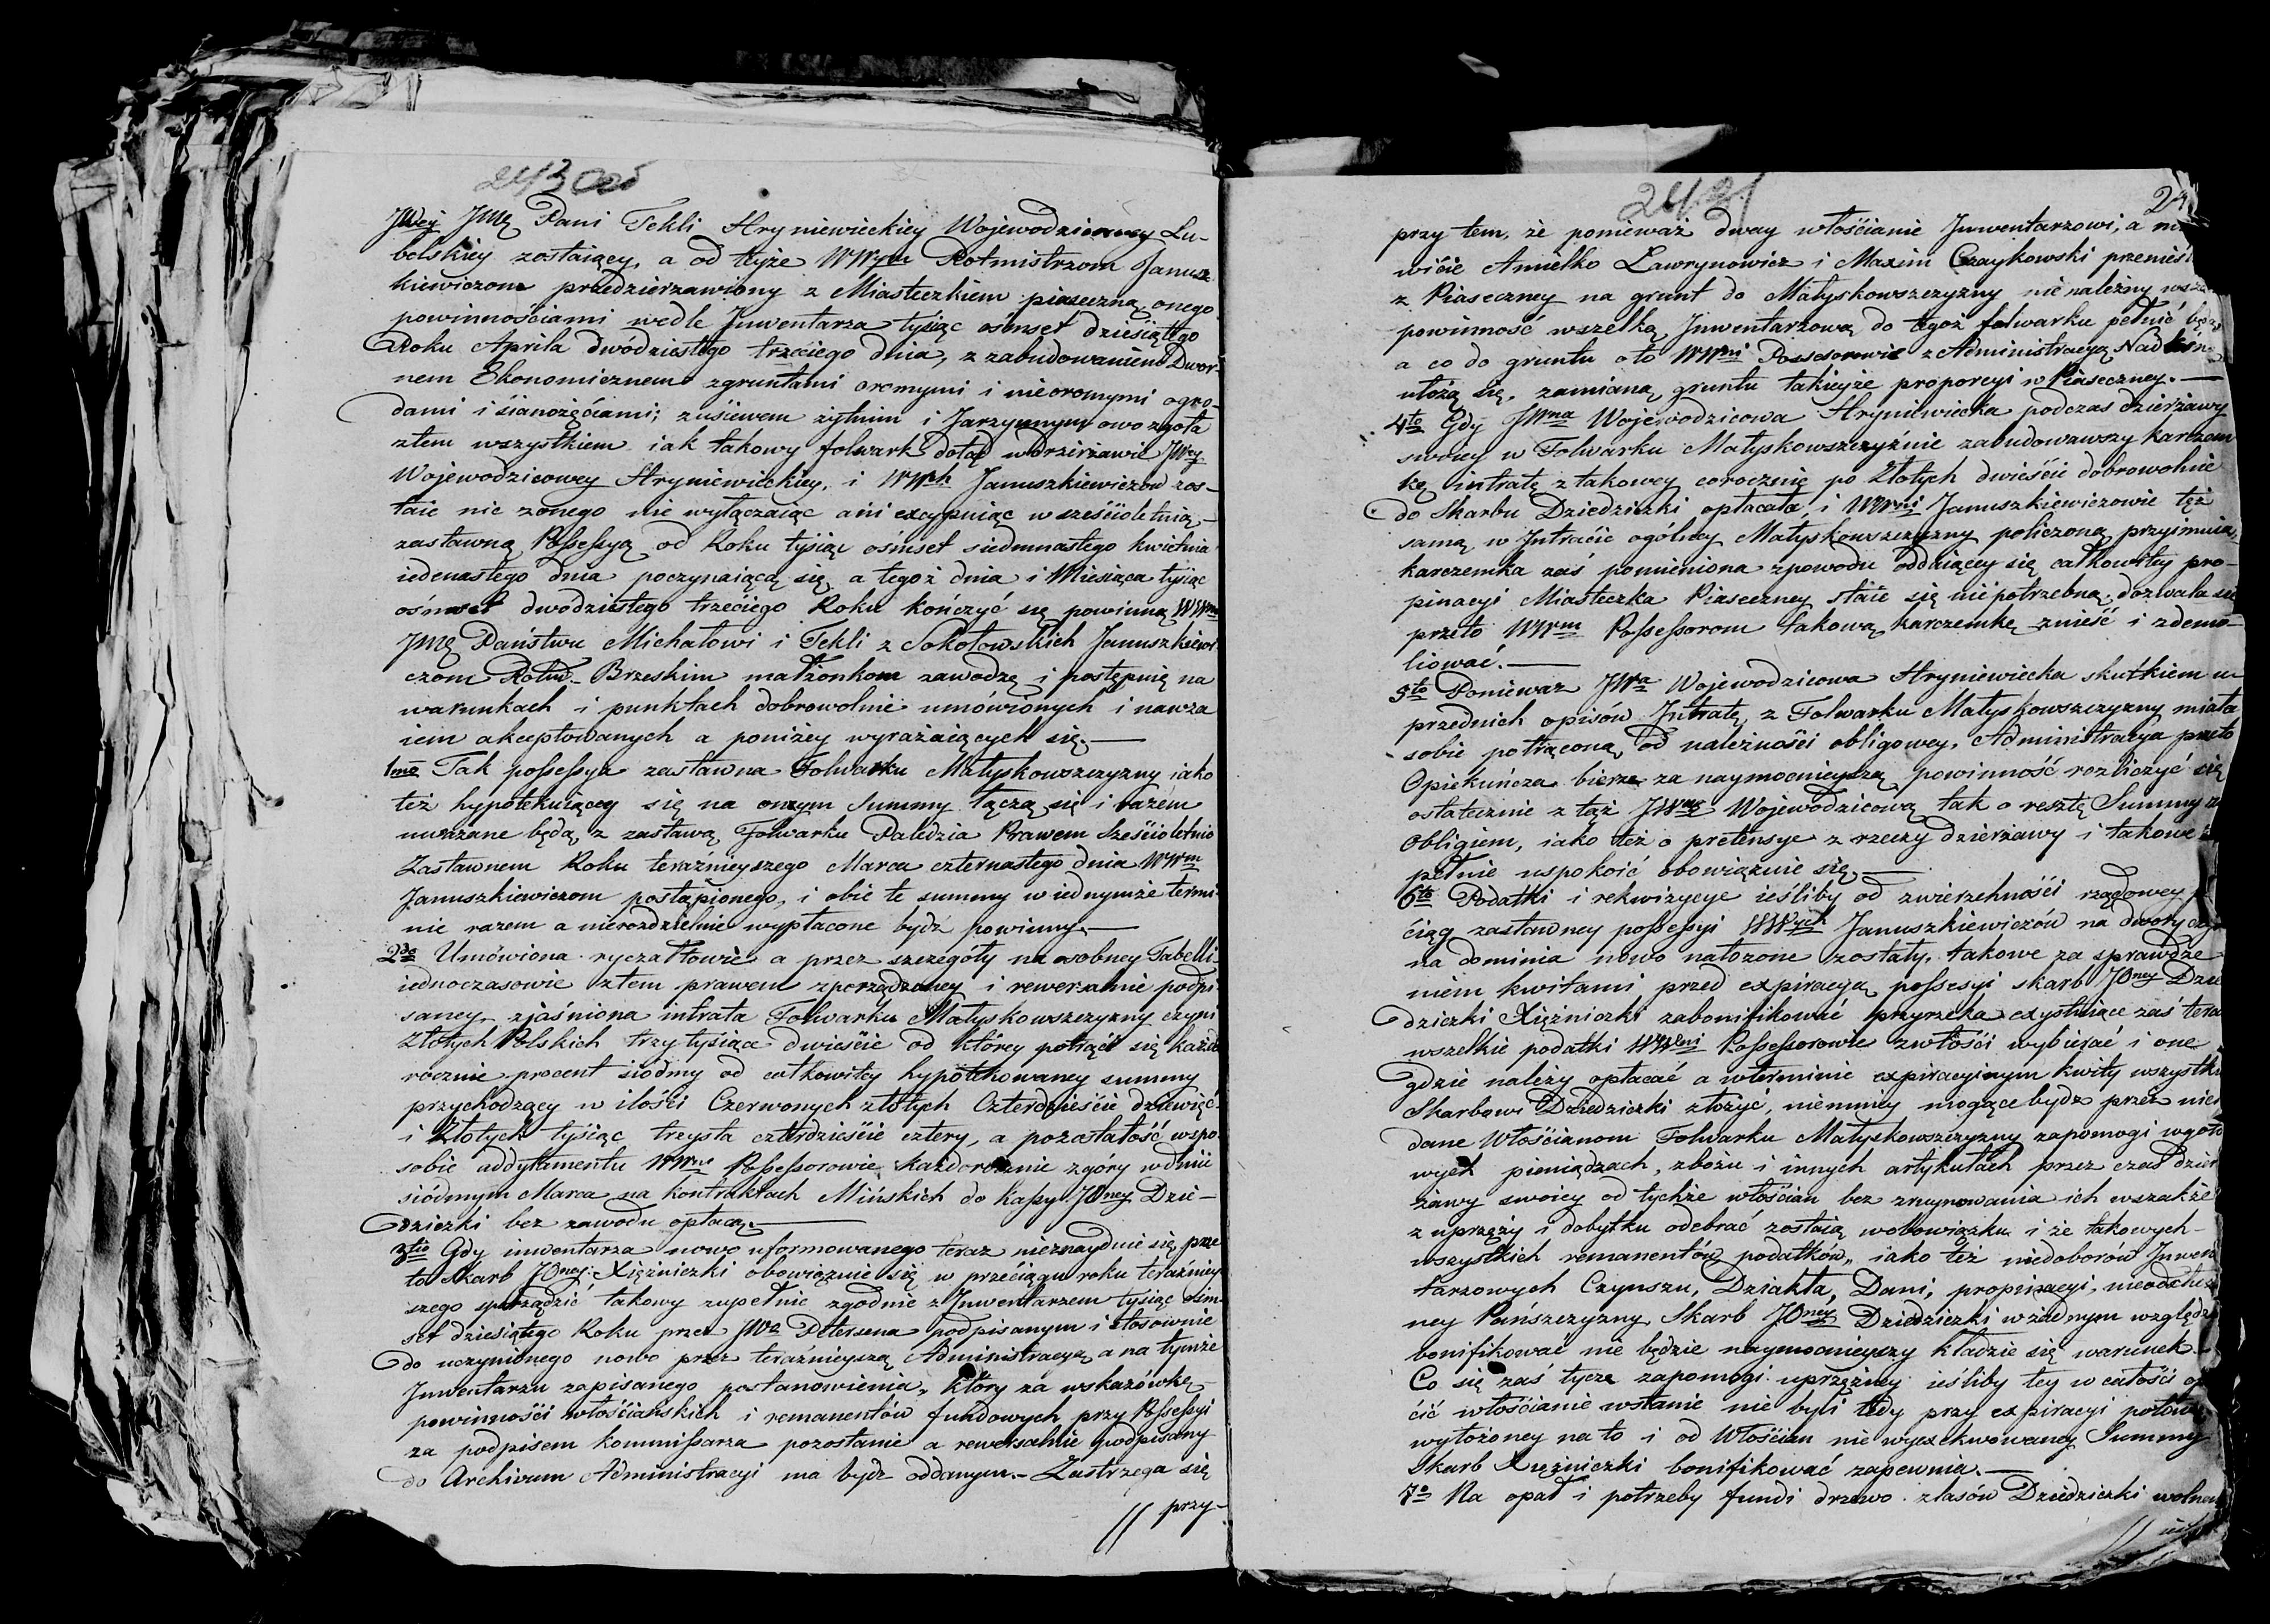 243 Od
JWey JMę Pani Tekli Hryniewieckiey Wojewodzicowey Lu-
belskiey zostaiącey, a od teyże WWym Rotmistrzom Janusz
kiewiczom przedzierzawiony z Miasteczkiem piaseczną onego
powinnościami wedle Jnwentarza tysiąc ośmset dziesiątego
Roku Aprila dwódziestego trzeciego dnia, z zabudowaniem Dwor-
nem Ekonomicznem zgruntami oromymi i nieoromymi ogro-
dami i sianożęćiami; zusiewem żytnim i Jarzynnym owo zgoła
ztem wszystkiem iak takowy folwark dotąd w dzierżawie JWey
Wojewodzicowey Hryniewieckiey, i WWch Januszkiewiczow zos-
taie nic zonego nie wyłączaiąc ani excypuiąc w sześćioletnią,
zastawną Possessyą od Roku tysiąc ośmset siedmnastego kwietnia
iedenastego dnia poczynaiącą się a tegoż dnia i Miesiąca tysiąc
ośmset dwódziestego trzećiego Roku kończyć się powinną WWm
JMę Państwu Michałowi i Tekli z Sokołowskich Januszkiewi-
czom Rotm. Brzeskim małżonkom zawodzę i postępuię na
warunkach i punktach dobrowolnie umówionych i nawza
iem akceptowanych a poniżey wyrażaiących się.—
1mo Tak possessya zastawna Folwarku Matyskowszczyzny iako
też hypotekuiącey się na onym Summy łączą się i razem
uważane będą z zastawą Folwarku Paledzia Prawem Sześcioletnio
Zastawnem Roku teraźnieyszego Marca czternastego dnia WWm
Januszkiewiczom postąpionego, i obie te summy w iednymże termi-
nie razem a nierozdzielnie wypłacone bydź powinny.—
2do Umówiona ryczałtowie a przez szczegóły na osobney Tabelli
iednoczasowie ztem prawem zporządzoney i rewersalnie podpi-
saney zjaśniona intrata Folwarku Matyskowszczyzny czyni
Złotych Polskich trzy tysiące dwieście od którey potrąci się każdo
rocznie procent siódmy od całkowitey hypotekowaney summy
przychodzący w ilości Czerwonych złotych Czterdzieście dziewięć
i Złotych tysiąc trzysta czterdzieście cztery, a pozostałość wspo-
sobie addytamentu WWni Possessorowie każdorocznie zgóry w dniu
siódmym Marca na kontraktach Mińskich do kassy JOney Dzie-
dziczki bez zawodu opłacą.—
3tio Gdy inwentarza nowo uformowanego teraz nieznayduie się, prze
to Skarb JOney Xiężniczki obowiązuie się w przeciągu roku teraźniey
szego sporządzić takowy zupełnie zgodnie z Jnwentarzem tysiąc ośm-
set dziesiątego Roku przez JWa Petersena podpisanym i stosownie
do uczynionego nowo przez teraźnieyszą Administracyą a na tymże
Jnwentarzu zapisanego postanowienia, który za wskazówkę
powinności włościańskich i remanentów fundowych przy Possessyi
za podpisem kommissarza pozostanie a rewersalnie podpisany
do Archivum Administracyi ma bydź oddanym.— Zastrzega się
// przy-
przy tem, że ponieważ dway włościanie Jnwentarzowi, a
wićie Amielko Ławrynowicz i Maxim Czaykowski
z Piaseczney na grunt do Matyskowszczyzny nie należny
powinność wszelką Jnwentarzową do tegoż folwarku pełnić
a co do gruntu oto WWni Possessorowie z Administracyą
ułożą się, zamianą gruntu takieyże proporcyi w Piaseczney.—
4to Gdy JWna Wojewodzicowa Hryniewiecka podczas dzierżawy
swoiey w Folwarku Matyskowszczyźnie zabudowawszy karczem
kę intratę z takowey corocznie po Złotych dwieście dobrowolnie
do Skarbu Dziedziczki opłacała, i WWni Januszkiewiczowie też
samą w Jntracie ogólney Matyskowszczyzny policzoną przyimuią,
karczemka zaś pomieniona zpowodu oddaiącey się całkowitey pro-
pinacyi Miasteczka Piaseczney staie się niepotrzebną, dozwala się
przeto WWm Possessorom takową karczemkę znieść i zdemo-
liować.—
5to Ponieważ JWa Wojewodzicowa Hryniewiecka skutkiem u-
przednich opisów Jntratę z Folwarku Matyskowszczyzny miała
sobie potrąconą, od należności obligowey, Administracya przeto
Opiekuńcza bierze za naymocnieyszą powinność rozliczyć się
ostatecznie z tąż JWną Wojewodzicową tak o resztę Summy
Obligiem, iako też o pretensye z rzeczy dzierżawy i takowe
pełnie uspokoić obowiązuie się.—
6to Podatki i rekwizycye ieśliby od zwierzchności rządowey
ciąg zastawney possessyi WWych Januszkiewiczów na dwory
na dominia nowo nałożone zostały, takowe za sprawdze
niem kwitami przed expiracyą possessyi skarb JOney Dzie
dziczki Xiężniczki zabonifikować przyrzeka exystuiące zaś tera
wszelkie podatki WWni Possessorowie zwłości wybierać i one
gdzie należy opłacać a wterminie expiracyinym kwity wszystkie
Skarbowi Dziedziczki złożyć, niemniey mogące bydź przez nich
dane Włościanom Folwarku Matyskowszczyzny zapomogi wgoto
wych pieniądzach, zbożu i innych artykułach przez czas dzier
żawy swoiey od tychże włościan bez zruynowania ich wszakże
z uprzęży i dobytku odebrać zostaią wobowiązku i że takowych
wszystkich remanentów podatków, iako też niedoborów Jnwen
tarzowych Czynszu, Dziakła, Dani, propinacyi,
ney Pańszczyzny Skarb JOney Dziedziczki w żadnym względzie
bonifikować nie będzie naymocnieyszy kładzie się warunek.—
Co się zaś tycze zapomogi uprzężney ieśliby tey w całości
cić włościanie wstanie nie byli tedy przy expiracyi połowę
wyłożoney na to i od Włościan nie wyexekwowaney Summy
Skarb Xiężniczki bonifikować zapewnia.—
7o Na opał i potrzeby fundi drzewo zlasów Dziedziczki